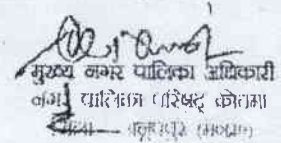 मुख्य नगर पालिका अधिकारी
नगर पालिका परिषद् कोतमा
अनूपपुर (म०प्र०)